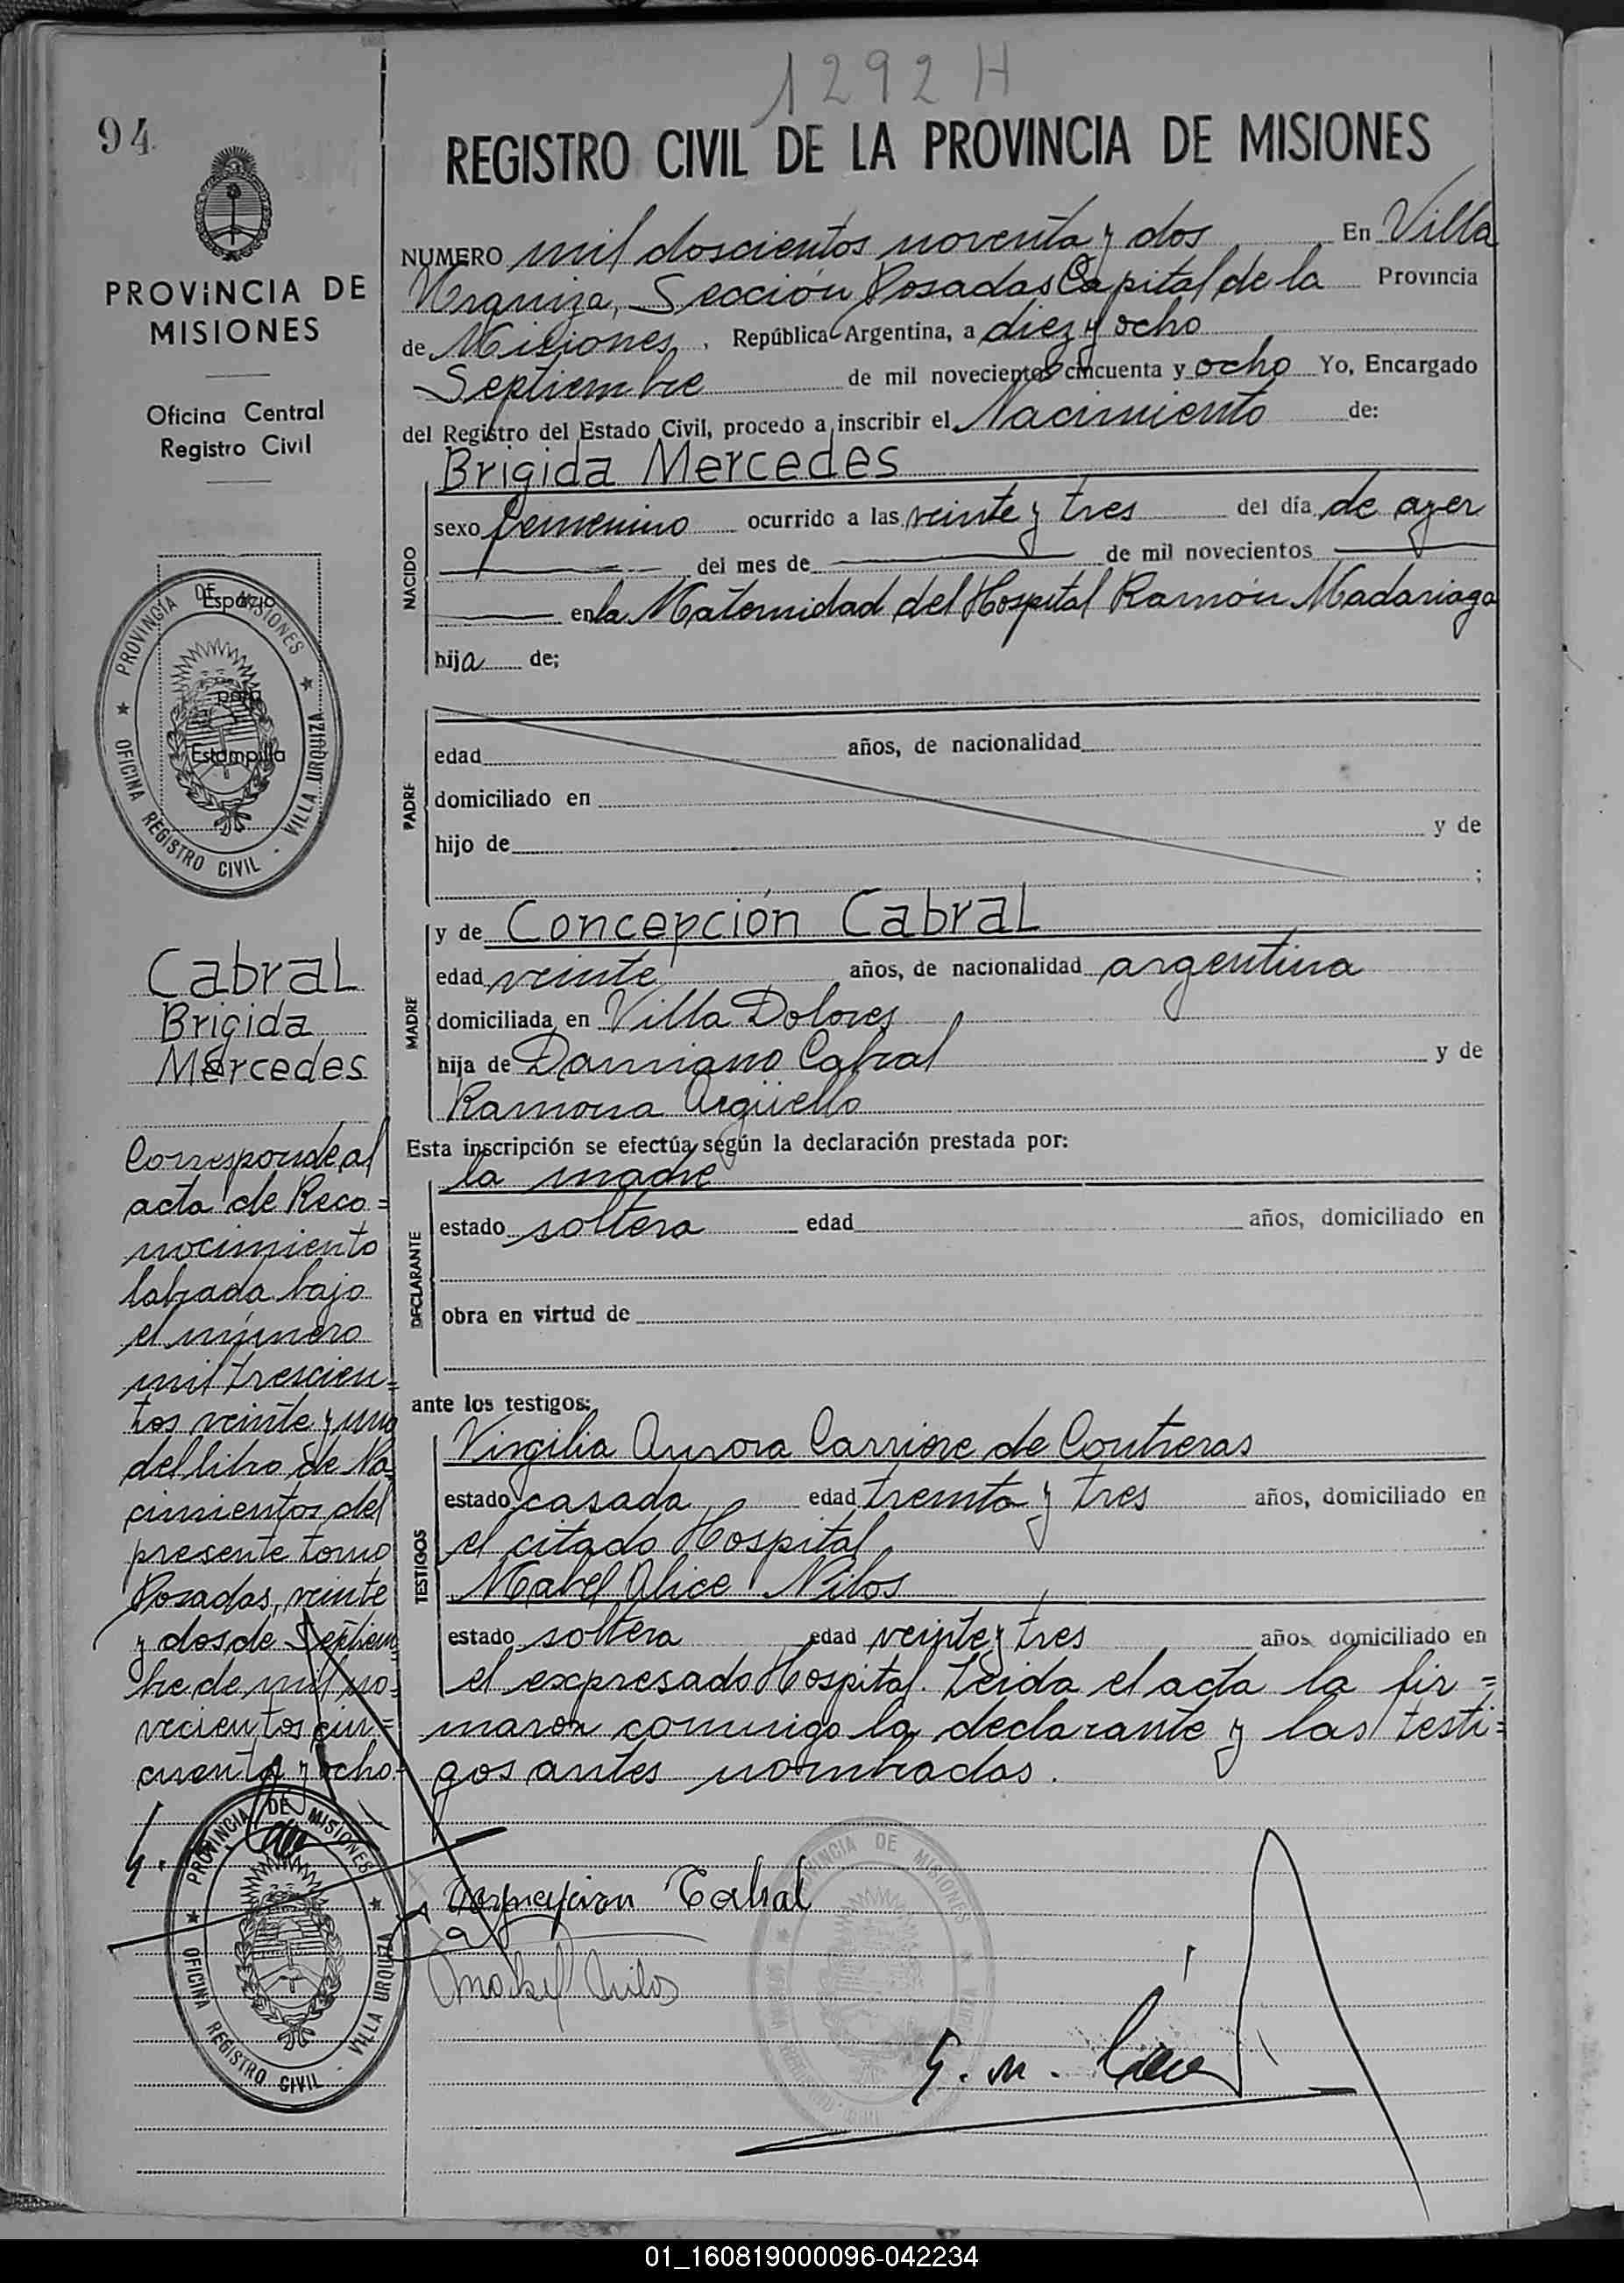 1292 H
94
REGISTRO CIVIL DE LA PROVINCIA DE MISIONES
PROVINCIA DE
MISIONES
Oficina Central
Registro Civil
NUMERO mil doscientos noventa y dos En Villa
Urquiza, Sección Posadas Capital de la Provincia
de Misiones, República Argentina, a diez y ocho
Septiembre de mil novecientos cincuenta y ocho Yo, Encargado
del Registro del Estado Civil, procedo a inscribir el Nacimiento de:
NACIDO
Brigida Mercedes
sexo femenino ocurrido a las veinte y tres del día de ayer
del mes de de mil novecientos
en la Maternidad del Hospital Ramón Madariaga
hija de;
PROVINCIA DE MISIONES
OFICINA REGISTRO CIVIL - VILLA URQUIZA
Espacio
para
Estampilla
PADRE
edad años, de nacionalidad
domiciliado en
hijo de y de
;
MADRE
y de Concepción Cabral
edad veinte años, de nacionalidad argentina
domiciliada en Villa Dolores
hija de Damiano Cabral y de
Ramona Argüello
Cabral
Brigida
Mercedes
Corresponde al
acta de Reco=
nocimiento
labrada bajo
el número
mil trescien=
tos veinte y uno
del libro de Na=
cimientos del
presente tomo
Posadas, veinte
y dos de Septiem
bre de mil no=
vecientos cin=
cuenta y ocho.
Esta inscripción se efectúa según la declaración prestada por:
DECLARANTE
la madre
estado soltera edad años, domiciliado en
obra en virtud de
ante los testigos:
TESTIGOS
Virgilia Aurora Carriere de Contreras
estado casada edad treinta y tres años, domiciliado en
el citado Hospital
Mabel Alice Nilos
estado soltera edad veinte y tres años domiciliado en
el expresado Hospital. Leida el acta la fir=
maron conmigo la declarante y las testi=
gos antes nombradas.
PROVINCIA DE MISIONES
OFICINA REGISTRO CIVIL - VILLA URQUIZA
Cabral
PROVINCIA DE MISIONES
G. M.
01_160819000096-042234